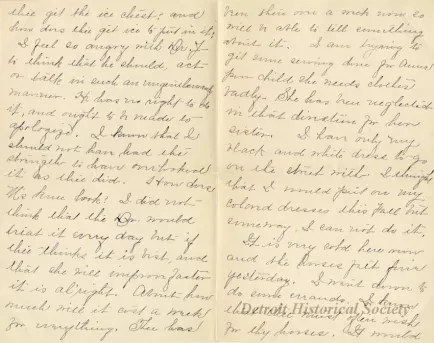 thee get the ice chest; and
how does thee get ice to put in it?
I feel so angry with Dr. T
to think that he should, act
or talk in such an ungentlemanly
manner. He has no right to do
it, and ought to be made to
apologize. I know that I
should not have had the
strength to have overlooked
it as thee did. How does
His knee look? I did not
think that the Dr would
treat it every day but if
thee thinks it is best, and
that she will improve faster
it is alright. About how
much will it cost a week
for everything. Thee has
been there over a week now so
will be able to tell something
about it. I am trying to
get some sewing done for Anna
poor child she needs clothes
badly. She has been neglected
in that direction for her
sister. I have only my
black and white dress to go
on the street with. I thought
that I would put on my
colored dresses this Fall but
someway I can not do it.
It is very cold here now
and the horses felt fine
yesterday. I went down to
do some errands. I know
that thee must often wish
for thy horses. It would
Detroit Historical Society